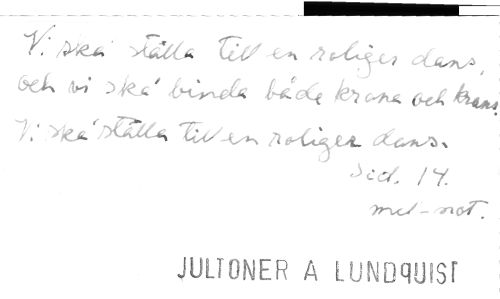 Vi ska' ställa till en roliger dans,
och vi ska' binda både krona och krans.
Vi ska' ställa till en roliger dans.
Sid. 14.
mel-not.
JULTONER A LUNDQUIST